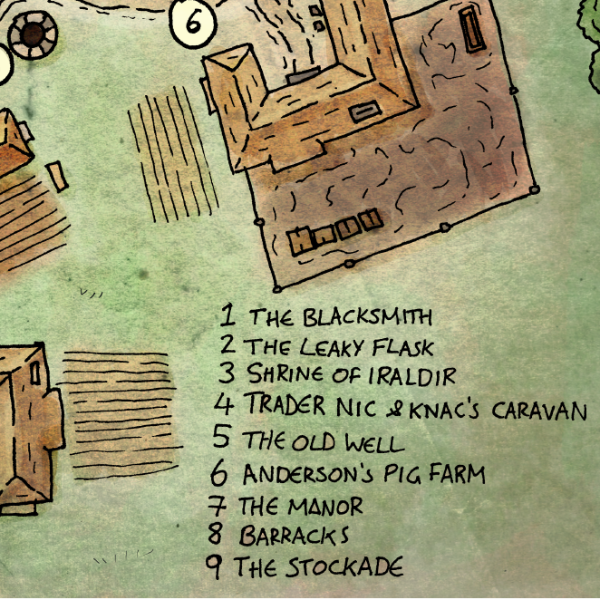 6
1 THE BLACKSMITH
2 THE LEAKY FLASK
3 SHRINE OF IRALDIR
4 TRADER NIC & KNAC'S CARAVAN
5 THE OLD WELL
6 ANDERSON'S PIG FARM
7 THE MANOR
8 BARRACKS
9 THE STOCKADE